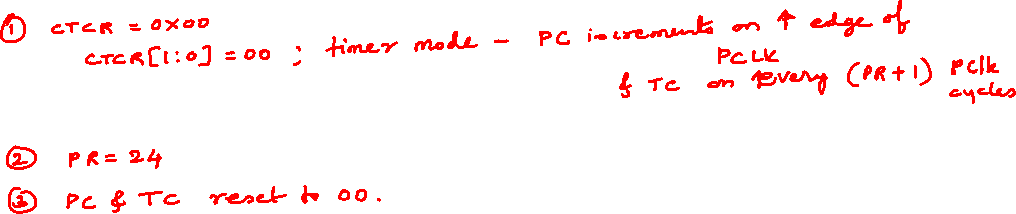 ① CTCR = 0X00
CTCR[1:0] = 00 ; timer mode - PC increments on ↑ edge of
PCLK
& TC on every (PR+1) Pclk
cycles
② PR = 24
③ PC & TC reset to 00.